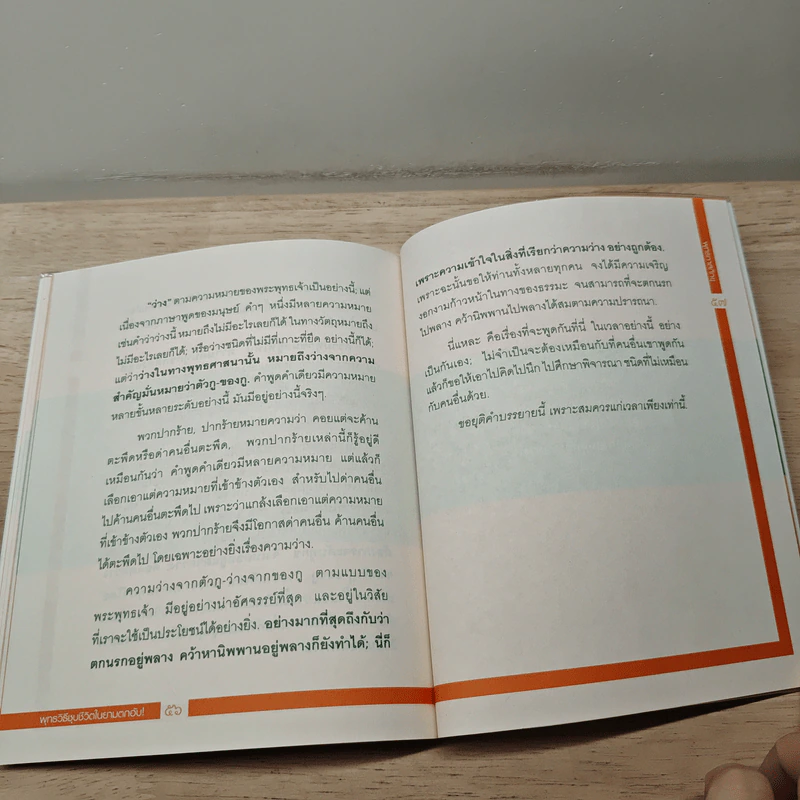 "ว่าง" ตามความหมายของพระพุทธเจ้าเป็นอย่างนี้; แต่
เนื่องจากภาษาพูดของมนุษย์ คำๆ หนึ่งมีหลายความหมาย
เช่นคำว่าว่างนี้ หมายถึงไม่มีอะไรเลยก็ได้ ในทางวัตถุหมายถึง
ไม่มีอะไรเลยก็ได้; หรือว่างชนิดที่ไม่มีที่เกาะที่ยึด อย่างนี้ก็ได้;
แต่ว่าว่างในทางพุทธศาสนานั้น หมายถึงว่างจากความ
สำคัญมั่นหมายว่าตัวกู-ของกู. คำพูดคำเดียวมีความหมาย
หลายชั้นหลายระดับอย่างนี้ มันมีอยู่อย่างนี้จริงๆ
พวกปากร้าย, ปากร้ายหมายความว่า คอยแต่จะค้าน
ตะพึดหรือด่าคนอื่นตะพึด, พวกปากร้ายเหล่านี้ก็รู้อยู่ดี
เหมือนกันว่า คำพูดคำเดียวมีหลายความหมาย แต่แล้วก็
เลือกเอาแต่ความหมายที่เข้าข้างตัวเอง สำหรับไปด่าคนอื่น
ไปค้านคนอื่นตะพึดไป เพราะว่าแกล้งเลือกเอาแต่ความหมาย
ที่เข้าข้างตัวเอง พวกปากร้ายจึงมีโอกาสด่าคนอื่น ค้านคนอื่น
ได้ตะพึดไป โดยเฉพาะอย่างยิ่งเรื่องความว่าง.
ความว่างจากตัวกู-ว่างจากของกู ตามแบบของ
พระพุทธเจ้า มีอยู่อย่างน่าอัศจรรย์ที่สุด และอยู่ในวิสัย
ที่เราจะใช้เป็นประโยชน์ได้อย่างยิ่ง. อย่างมากที่สุดถึงกับว่า
ตกนรกอยู่พลาง คว้าหานิพพานอยู่พลางก็ยังทำได้; นี่ก็
พุทธวิธีชุบชีวิตในยามตกอับ!
๕๖
เพราะความเข้าใจในสิ่งที่เรียกว่าความว่าง อย่างถูกต้อง.
เพราะฉะนั้นขอให้ท่านทั้งหลายทุกคน จงได้มีความเจริญ
งอกงามก้าวหน้าในทางของธรรมะ จนสามารถที่จะตกนรก
ไปพลาง คว้านิพพานไปพลางได้สมตามความปรารถนา.
นี่แหละ คือเรื่องที่จะพูดกันที่นี่ ในเวลาอย่างนี้ อย่าง
เป็นกันเอง; ไม่จำเป็นจะต้องเหมือนกับที่คนอื่นเขาพูดกัน
แล้วก็ขอให้เอาไปคิดไปนึก ไปศึกษาพิจารณา ชนิดที่ไม่เหมือน
กับคนอื่นด้วย.
ขอยุติคำบรรยายนี้ เพราะสมควรแก่เวลาเพียงเท่านี้.
พุทธทาสภิกขุ
๕๗